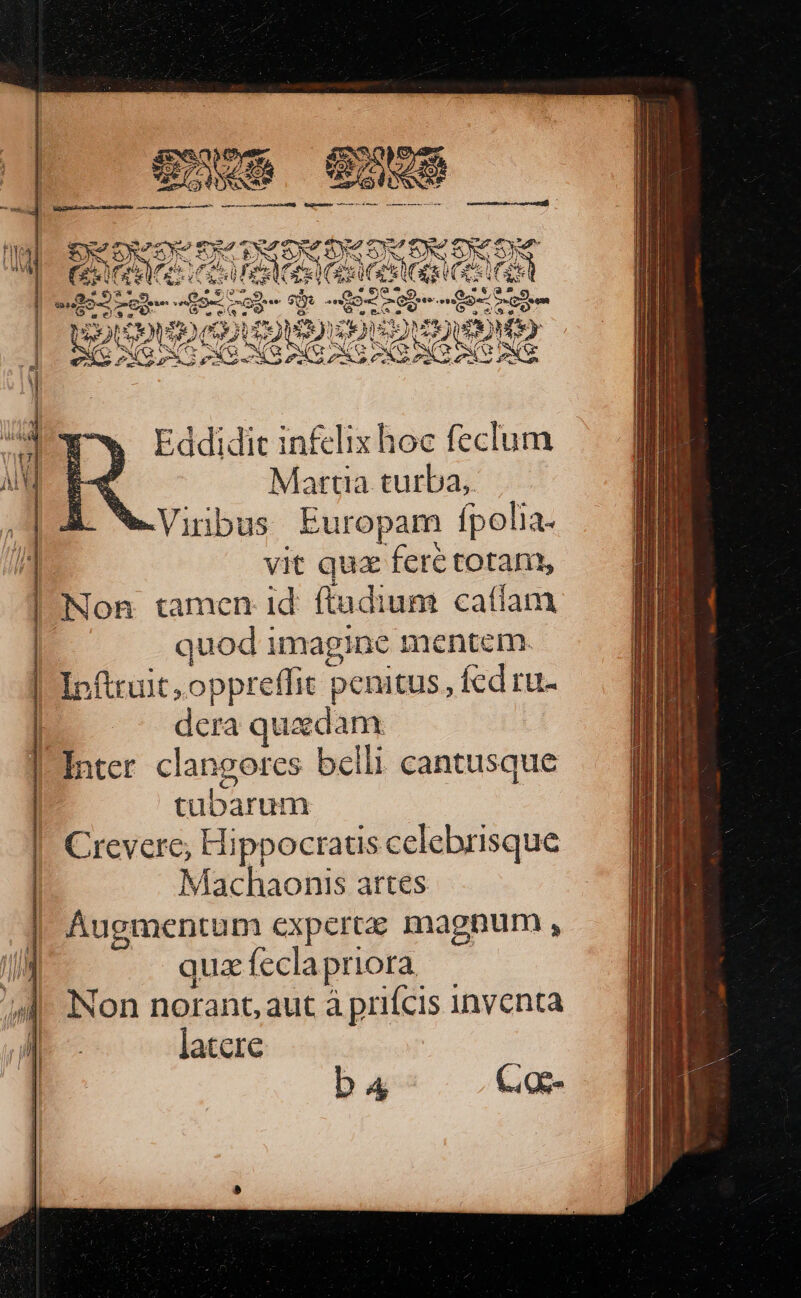 REddidit infelix hoc ſeclum
Martia turba,
Viribus Europam ſpolia-
vit quæ ferè totam,
Non tamen id ſtudium caſſam
quod imagine mentem
Inſtruit, oppreſſit penitus, ſed ru-
dera quædam
Inter clangores belli cantusque
tubarum
Crevere, Hippocratis celebrisque
Machaonis artes
Augmentum expertæ magnum,
quæ ſecla priora
Non norant, aut à priſcis inventa
latere
b 4 Cœ-